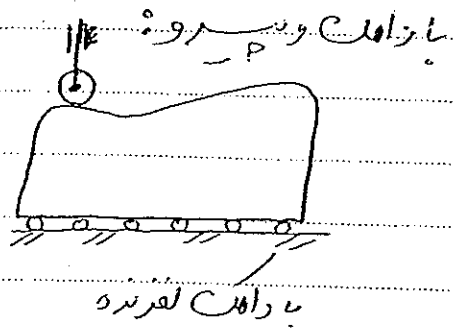 بادامک و پیرو:
بادامک لغزنده